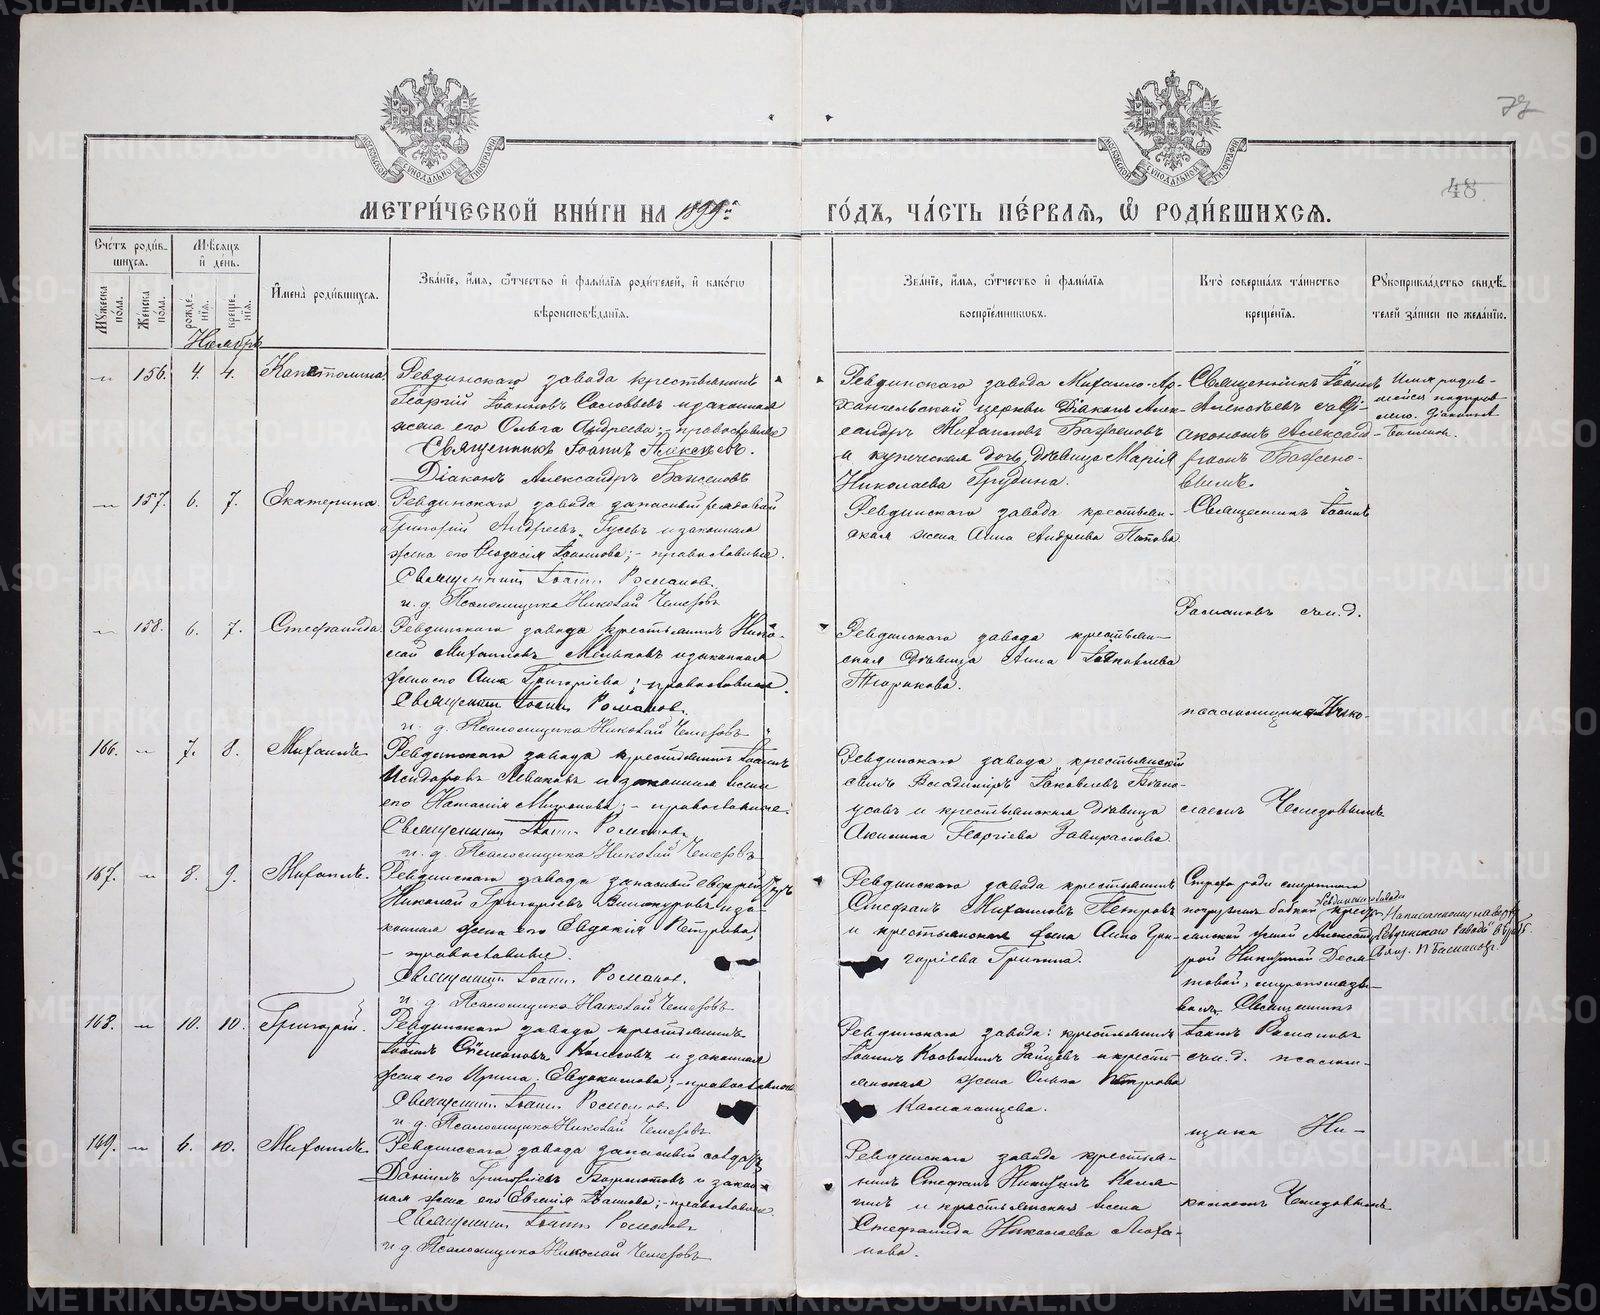 77
48
МОСКОВСКОЙ СѴНОДАЛЬНОЙ ТИПОГРАФІИ
МОСКОВСКОЙ СѴНОДАЛЬНОЙ ТИПОГРАФІИ
МЕТРИ́ЧЕСКОЙ КНИ́ГИ НА 1899й ГО́ДЪ, ЧА́СТЬ ПЕ́РВАѦ, Ѽ РОДИ́ВШИХСѦ.
Сче́тъ роди́в-
шихсѧ.
Мꙋ́жеска по́ла.
Же́нска по́ла.
Мѣ́сѧцъ
и҆ де́нь.
рожде́-
нїѧ.
креще́-
нїѧ.
И҆мена̀ роди́вшихсѧ.
Зва́нїе, и҆́мѧ, ѻ҆́тчество и҆ фами́лїѧ роди́телей, и҆ како́гѡ
вѣроисповѣ́данїѧ.
Зва́нїе, и҆́мѧ, ѻ҆́тчество и҆ фами́лїѧ
воспрїе́мниковъ.
Кто̀ соверша́лъ та́инство
креще́нїѧ.
Рꙋкоприкла́дство свидѣ́-
телей за́писи по жела́нїю.
Ноябрь
„ 156. 4. 4. Капитолина
Ревдинскаго завода крестьянинъ
Георгій Іоанновъ Соловьевъ и законная
жена его Ольга Андреева; - православные
Священникъ Іоаннъ Алексѣевъ.
Діаконъ Александръ Баженовъ
Ревдинскаго завода Михаило-Ар-
хангельской церкви Діаконъ Алек-
сандръ Михаиловъ Баженовъ
и купеческая дочь, дѣвица Марія
Николаева Грудина.
Священникъ Іоаннъ
Алексѣевъ съ Ді-
акономъ Александ-
ромъ Бажено-
вымъ.
Имя родив-
шейся
Діаконъ
Баженовъ.
„ 157. 6. 7. Екатерина.
Ревдинскаго завода запасный рядовой
Григорій Андреевъ Гусевъ и законная
жена его Ѳеодосія Іоаннова; - православные.
Священникъ Іоаннъ Романовъ.
и. д. Псаломщика Николай Чемезовъ
Ревдинскаго завода крестьян-
ская жена Анна Андреева Попова
Священникъ Іоаннъ
Романовъ съ и. д.
псаломщика Нико-
лаемъ Чемезовымъ
„ 158. 6. 7. Стефанида
Ревдинскаго завода крестьянинъ Нико-
лай Михаиловъ Мельковъ и законная
жена его Анна Григоріева; - православные.
Священникъ Іоаннъ Романовъ.
и. д. Псаломщика Николай Чемезовъ
Ревдинскаго завода крестьян-
ская дѣвица Анна Іаковлева
166. „ 7. 8. Михаилъ
Ревдинскаго завода крестьянинъ Іоаннъ
Исидоровъ и законная жена
его Наталія Миронова; - православные.
Священникъ Іоаннъ Романовъ.
и. д. Псаломщика Николай Чемезовъ
Ревдинскаго завода крестьянскій
сынъ Владиміръ Іаковлевъ Бѣло-
усовъ и крестьянская дѣвица
Акилина Георгіева
167. „ 8. 9. Михаилъ.
Ревдинскаго завода запасный
Николай Григоріевъ Винокуровъ и за-
конная жена его Евдокія Петрова;
- православные.
Священникъ Іоаннъ Романовъ.
и. д. Псаломщика Николай Чемезовъ
Ревдинскаго завода крестьянинъ
Стефанъ Михаиловъ Петровъ
и крестьянская жена Анна Гри-
горіева
Страха ради смертнаго
погруженъ бабкой Ревдинскаго завода крес-
тьянской женой Александ-
рой Никитиной Десят-
ковой, мѵропомазы-
валъ Священникъ
Іоаннъ Романовъ
съ и. д. псалом-
щика Ни-
колаемъ Чемезовымъ
Написанному на верху
„Ревдинскаго завода“ вѣрить.
Свящ. І. Романовъ.
168. „ 10. 10. Григорій.
Ревдинскаго завода крестьянинъ
Іоаннъ Стефановъ и законная
жена его Ирина Евдокимова; - православные
Священникъ Іоаннъ Романовъ.
и. д. Псаломщика Николай Чемезовъ
Ревдинскаго завода: крестьянинъ
Іоаннъ Космовъ Зайцевъ и кресть-
янская жена Ольга Петрова
Камаганцева.
169. „ 6. 10. Михаилъ
Ревдинскаго завода запасный солдатъ
Даніилъ Григоріевъ и закон-
ная жена его Евгенія Іоаннова; - православные.
Священникъ Іоаннъ Романовъ
и. д. Псаломщика Николай Чемезовъ
Ревдинскаго завода крестья-
нинъ Стефанъ Никитинъ
и крестьянская жена
Стефанида Николаева
METRIKI.GASO-URAL.RU